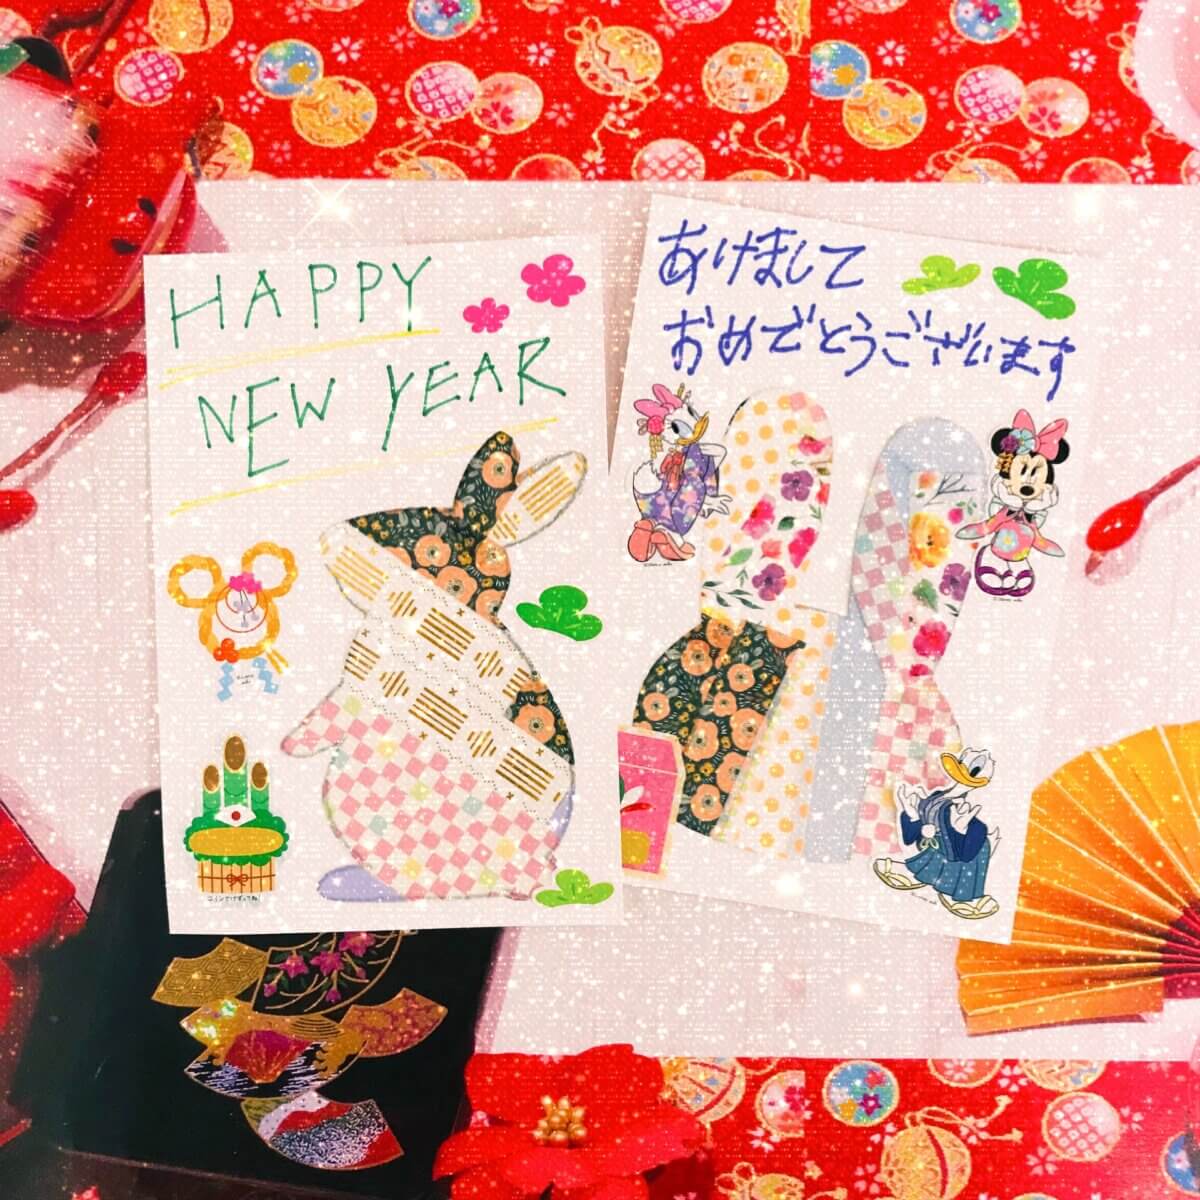 HAPPY
NEW YEAR
あけまして
おめでとうございます